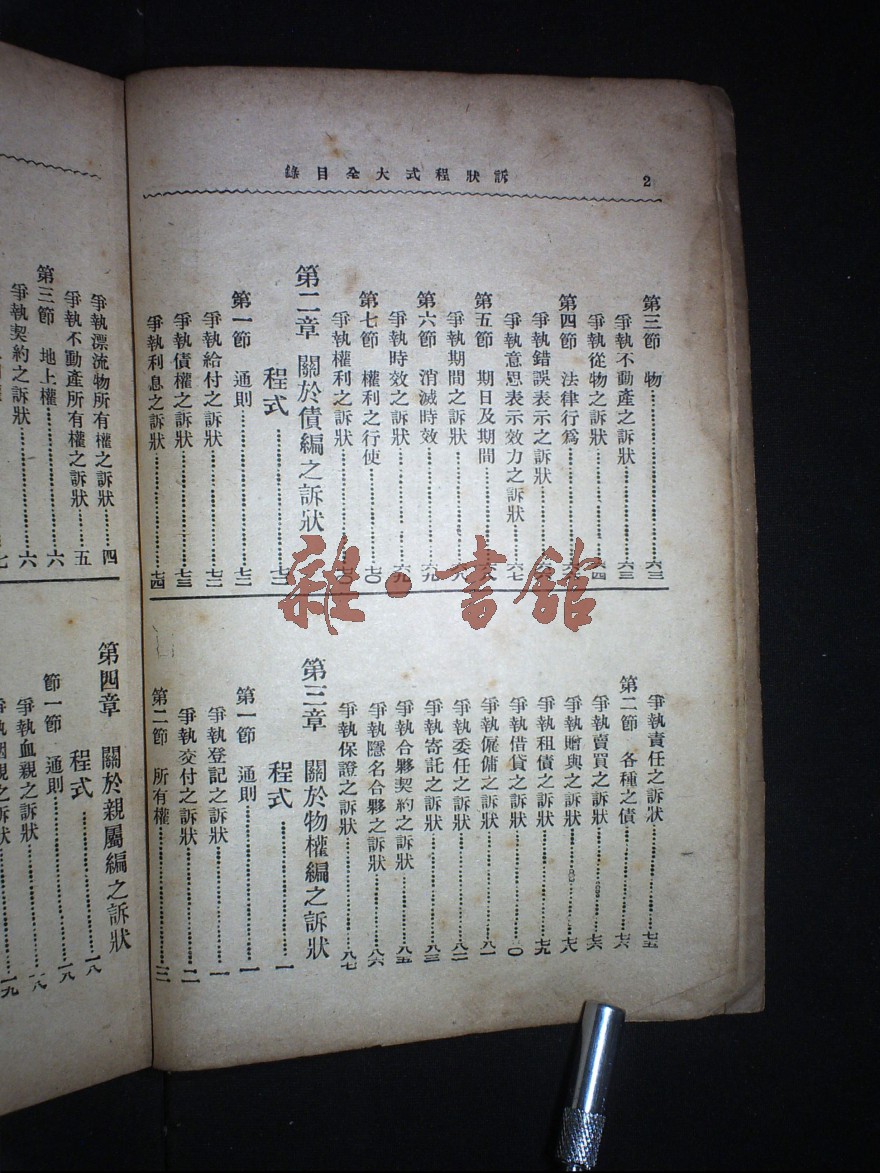 訴狀程式大全目錄 2
第三節 物……六三
爭執不動產之訴狀……六三
爭執從物之訴狀……六四
第四節 法律行為
爭執錯誤表示之訴狀
爭執意思表示效力之訴狀……六七
第五節 期日及期間……六八
爭執期間之訴狀……六八
第六節 消滅時效……六九
爭執時效之訴狀……六九
第七節 權利之行使……七〇
爭執權利之訴狀……七〇
第二章 關於債編之訴狀
程式……七二
第一節 通則……七二
爭執給付之訴狀……七二
爭執債權之訴狀……七三
爭執利息之訴狀……七四
爭執責任之訴狀……七五
第二節 各種之債……七六
爭執賣買之訴狀……七六
爭執贈與之訴狀……七八
爭執租債之訴狀……七九
爭執借貸之訴狀……〇
爭執僱傭之訴狀……八一
爭執委任之訴狀……八二
爭執寄託之訴狀……八三
爭執合夥契約之訴狀……八五
爭執隱名合夥之訴狀……八六
爭執保證之訴狀……八七
第三章 關於物權編之訴狀
程式……一
第一節 通則……一
爭執登記之訴狀……一
爭執交付之訴狀……二
第二節 所有權……三
爭執漂流物所有權之訴狀……四
爭執不動產所有權之訴狀……五
第三節 地上權……六
爭執契約之訴狀……六
七
第四章 關於親屬編之訴狀
程式……一八
節一節 通則……一八
爭執血親之訴狀……一八
爭執姻親之訴狀……一九
雜·書館